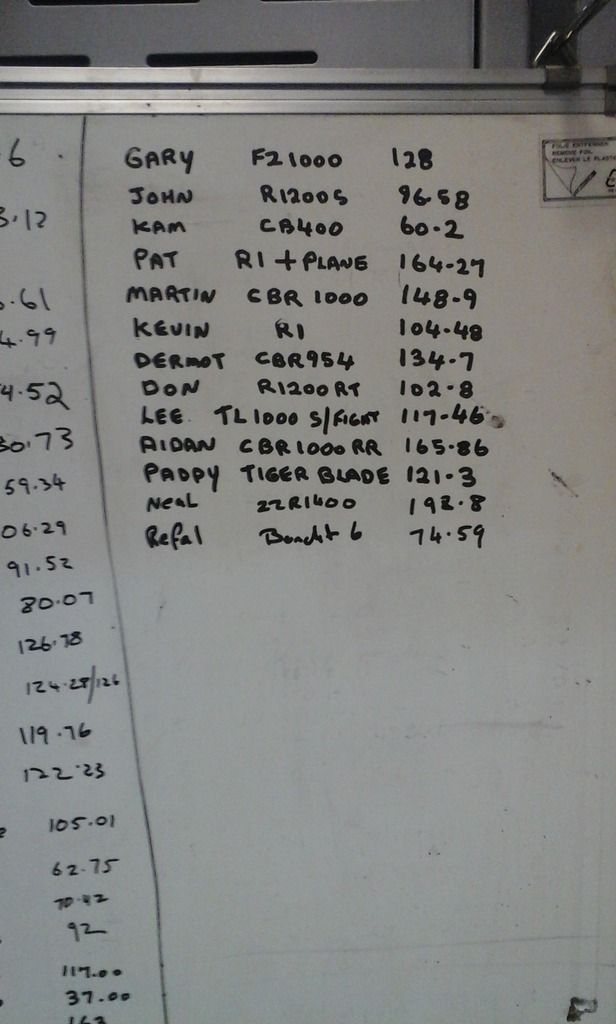 6 .
3.12
.61
4.99
4.52
30.73
59.34
06.29
91.52
80.07
126.78
124.28/126
119.76
122.23
105.01
62.75
70.42
92
117.00
37.00
163
GARY FZ1000 128
JOHN R1200S 96.58
KAM CB400 60.2
PAT R1 + PLANE 164.27
MARTIN CBR 1000 148.9
KEVIN R1 104.48
DERMOT CBR954 134.7
DON R1200RT 102.8
LEE TL1000 S/FIGHT 117.46
AIDAN CBR1000RR 165.86
PADDY TIGER BLADE 121.3
Neal ZZR1400 192.8
Refal Bandit 6 74.59
FOLIE ENTFERNEN
REMOVE FOIL
ENLEVER LE PLASTI